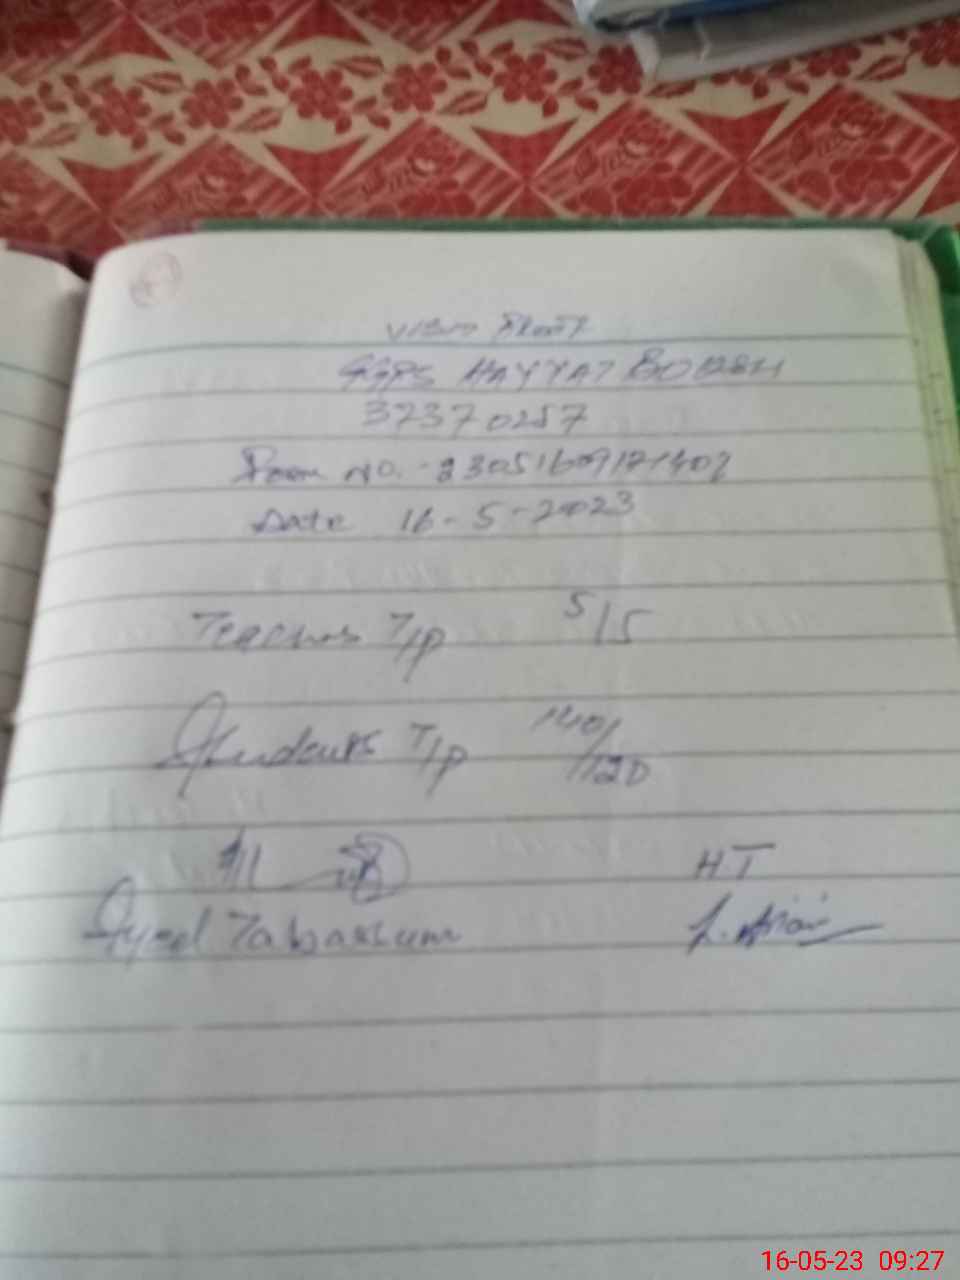 Visit Report
GGPS HAYYAT BODEH
37370257
Form No. - 23051609121402
Date 16-5-2023
Teachers T/p 5/5
Students T/p 140/120
HT
Syed Tabassum
16-05-23 09:27